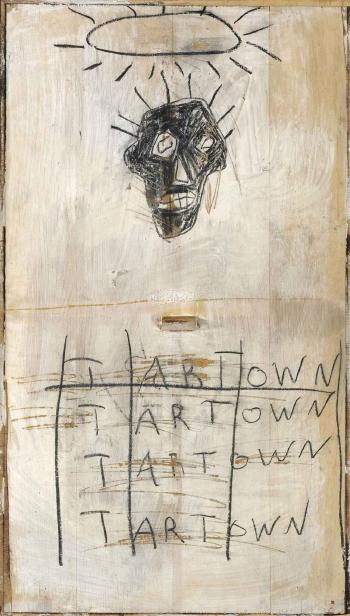 TARTOWN
TARTOWN
TARTOWN
TARTOWN